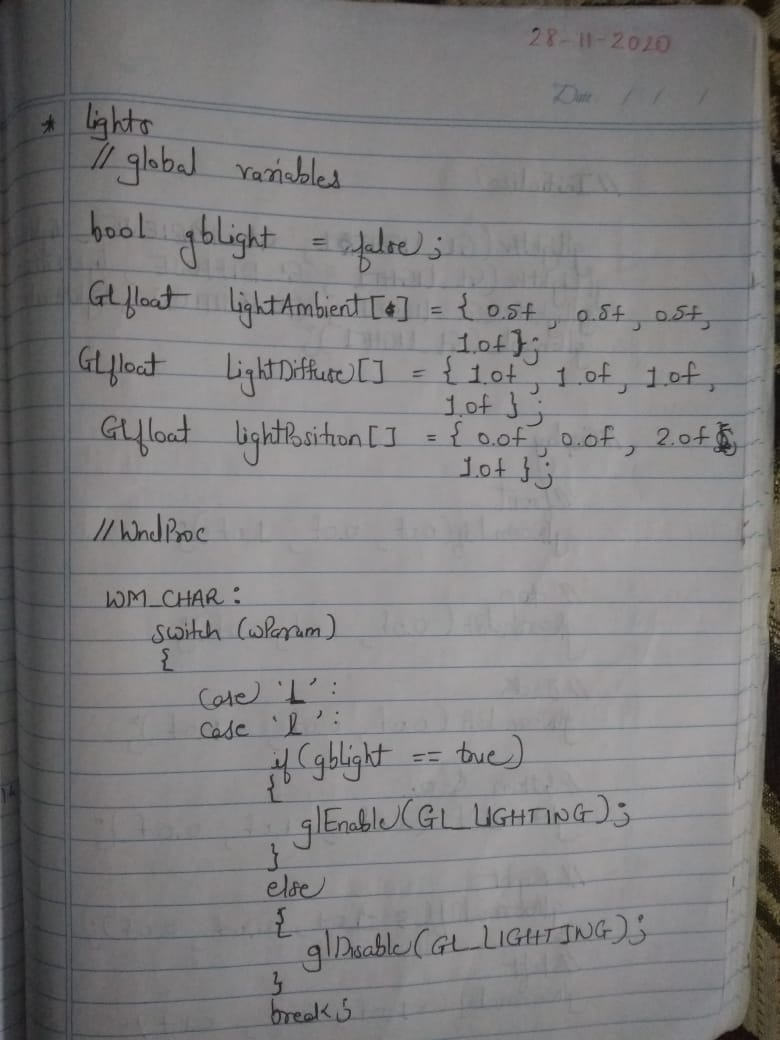 28-11-2020
Date / / /
* lights
// global variables
bool gblight = false;
GLfloat lightAmbient[] = { 0.5f, 0.5f, 0.5f,
1.0f };
GLfloat lightDiffuse[] = { 1.0f, 1.0f, 1.0f,
1.0f };
GLfloat lightPosition[] = { 0.0f, 0.0f, 2.0f,
1.0f };
// WndProc
WM_CHAR :
switch (wParam)
{
case 'L' :
case 'l' :
if (gblight == true)
{
glEnable(GL_LIGHTING);
}
else
{
glDisable(GL_LIGHTING);
}
break;